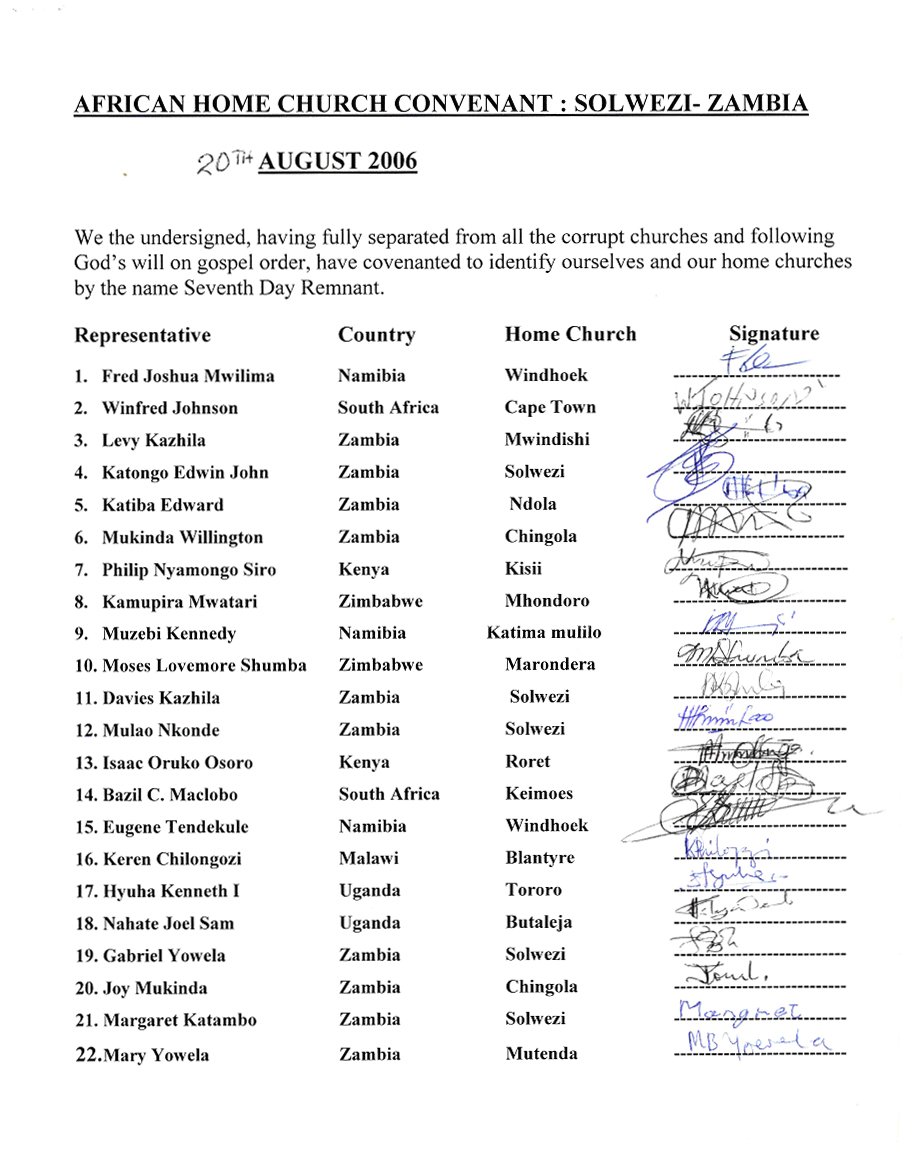 AFRICAN HOME CHURCH CONVENANT : SOLWEZI- ZAMBIA
20TH AUGUST 2006
We the undersigned, having fully separated from all the corrupt churches and following
God's will on gospel order, have covenanted to identify ourselves and our home churches
by the name Seventh Day Remnant.
Representative Country Home Church Signature
1. Fred Joshua Mwilima Namibia Windhoek
2. Winfred Johnson South Africa Cape Town WJOHNSON
3. Levy Kazhila Zambia Mwindishi
4. Katongo Edwin John Zambia Solwezi
5. Katiba Edward Zambia Ndola
6. Mukinda Willington Zambia Chingola
7. Philip Nyamongo Siro Kenya Kisii
8. Kamupira Mwatari Zimbabwe Mhondoro
9. Muzebi Kennedy Namibia Katima mulilo
10. Moses Lovemore Shumba Zimbabwe Marondera MShumba
11. Davies Kazhila Zambia Solwezi
12. Mulao Nkonde Zambia Solwezi
13. Isaac Oruko Osoro Kenya Roret
14. Bazil C. Maclobo South Africa Keimoes
15. Eugene Tendekule Namibia Windhoek
16. Keren Chilongozi Malawi Blantyre
17. Hyuha Kenneth I Uganda Tororo
18. Nahate Joel Sam Uganda Butaleja
19. Gabriel Yowela Zambia Solwezi
20. Joy Mukinda Zambia Chingola
21. Margaret Katambo Zambia Solwezi Margret
22.Mary Yowela Zambia Mutenda MB Yowela